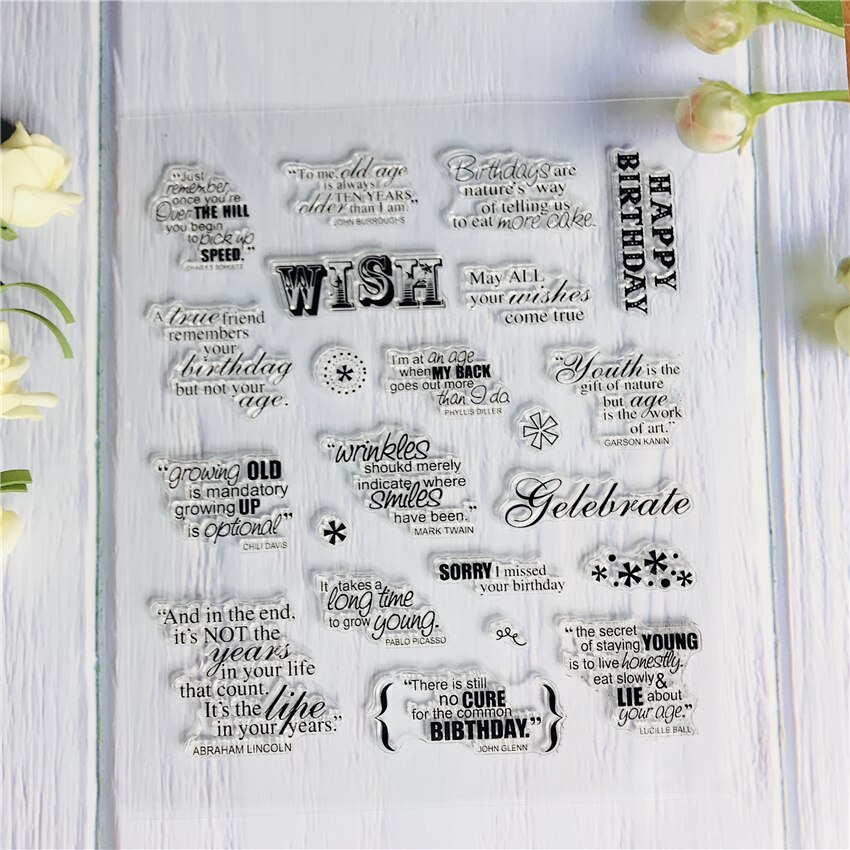 "Just
remember,
once you're
Over THE HILL
you begin
to pick up
SPEED."
CHARLES SCHULTZ
"To me, old age
is always
TEN YEARS
older than I am."
JOHN BURROUGHS
Birthdays are
nature's way
of telling us
to eat more cake.
HAPPY
BIRTHDAY
WISH
May ALL
your wishes
come true
A true friend
remembers
your
birthday
but not your
age.
I'm at an age
when MY BACK
goes out more
than I do.
PHYLLIS DILLER
"Youth is the
gift of nature
but age
is the work
of art."
GARSON KANIN
"growing OLD
is mandatory
growing UP
is optional"
CHILI DAVIS
"wrinkles
shoukd merely
indicate where
smiles
have been."
MARK TWAIN
Gelebrate
SORRY I missed
your birthday
It takes a
long time
to grow young.
PABLO PICASSO
"And in the end,
it's NOT the
years
in your life
that count.
It's the life
in your years."
ABRAHAM LINCOLN
"There is still
no CURE
for the common
BIRTHDAY."
JOHN GLENN
"the secret
of staying YOUNG
is to live honestly.
eat slowly &
LIE about
your age."
LUCILLE BALL